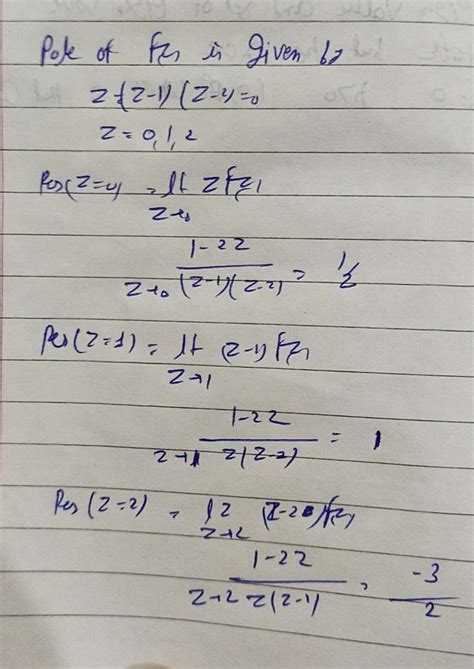 Pole of f(z) is given by
z(z-1)(z-2)=0
z = 0, 1, 2
Res(z=0) = lt z f(z)
z→0
1-2z
z→0 (z-1)(z-2) = 1/2
Res(z=1) = lt (z-1) f(z)
z→1
1-2z
z→1 z(z-2) = 1
Res (z=2) = lt (z-2) f(z)
z→2
1-2z
z→2 z(z-1) = -3/2